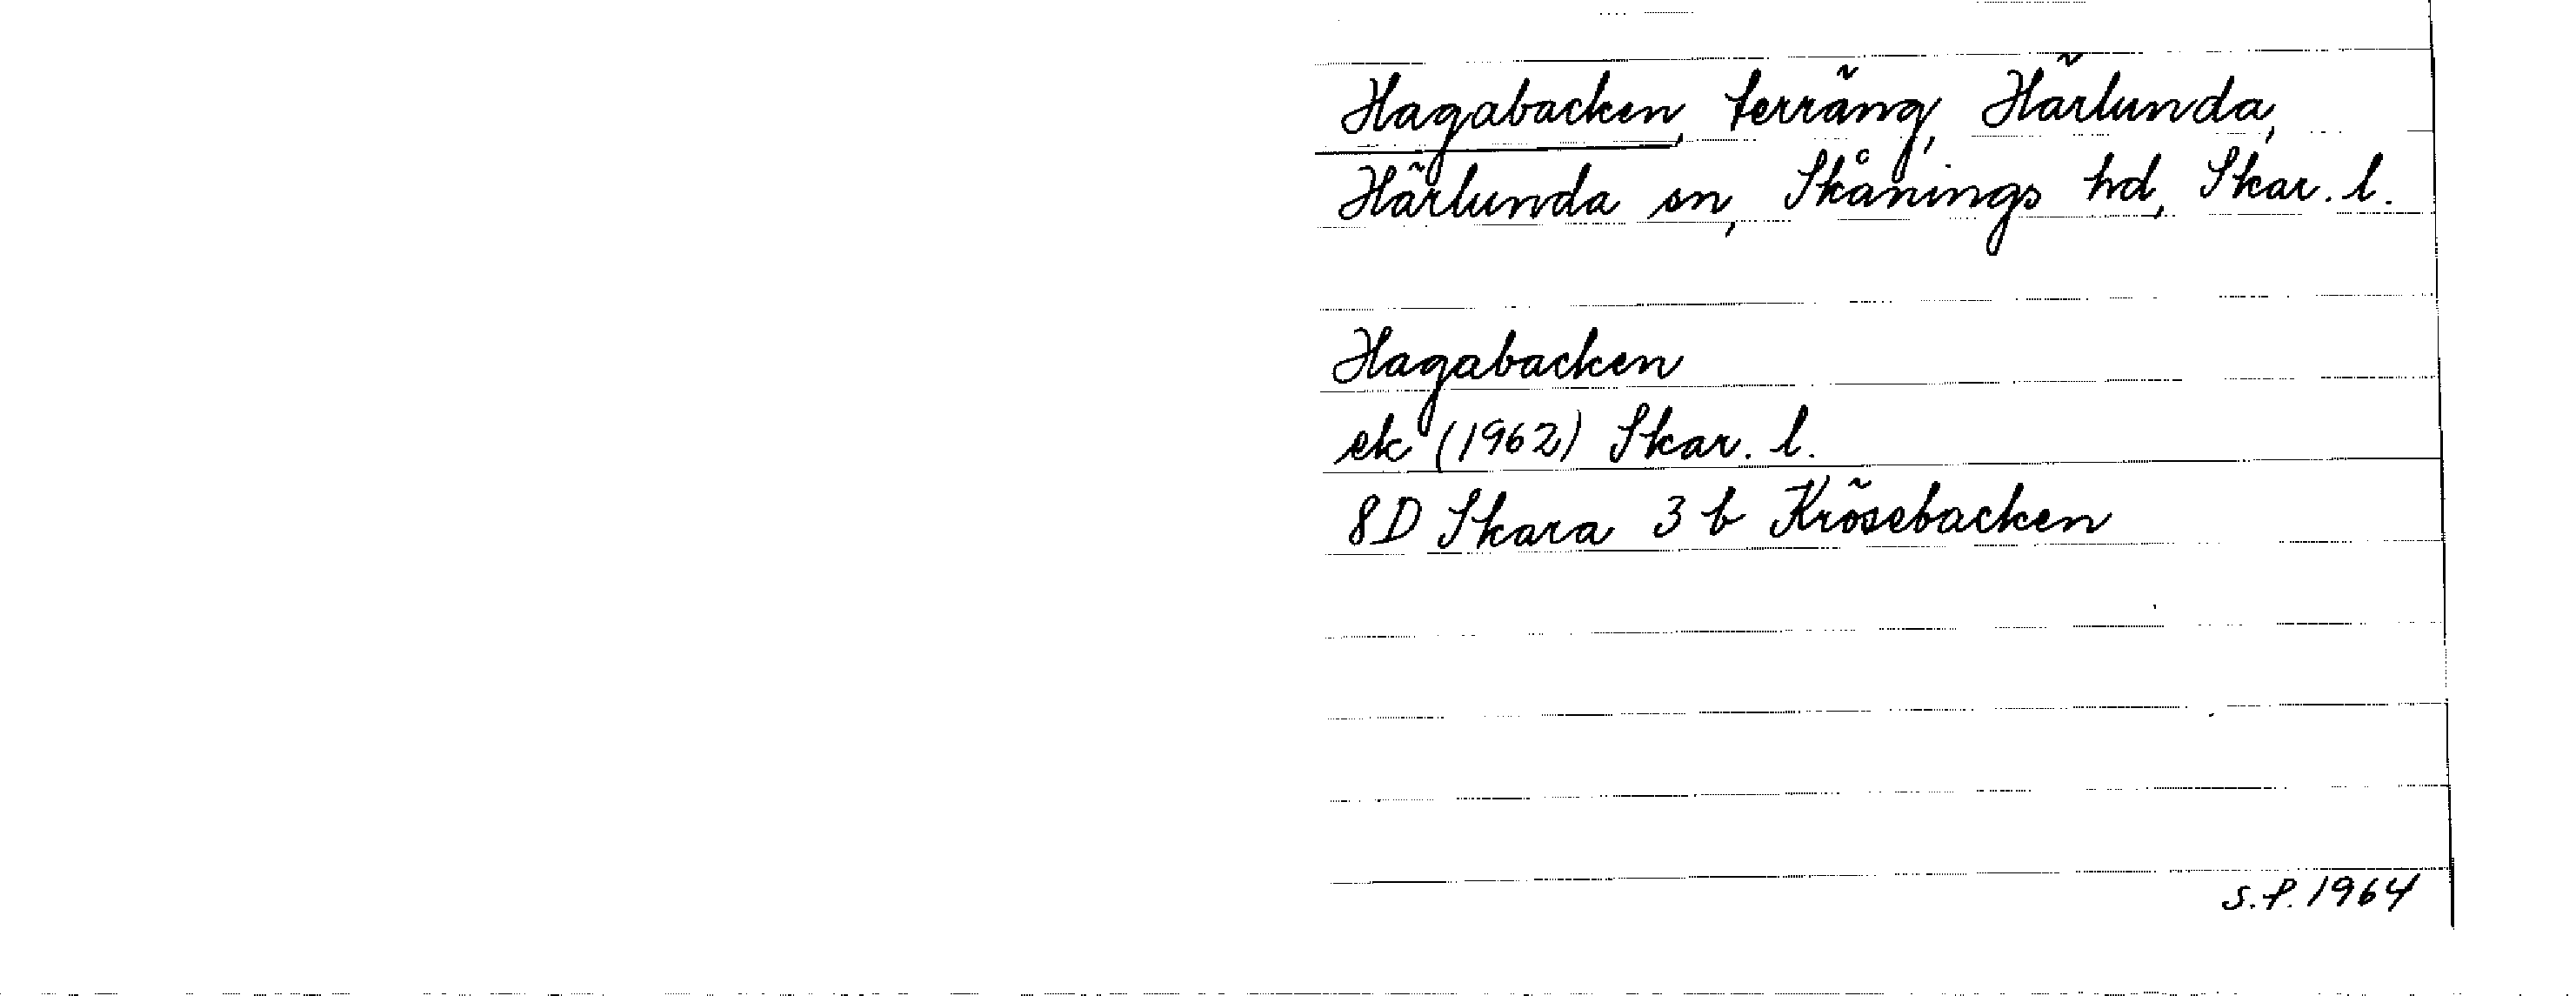 Hagabacken, terräng, Härlunda,
Härlunda sn, Skånings hd, Skar. l.
Hagabacken
ek (1962) Skar. l.
8D Skara 3 b Krösebacken
S.P. 1964